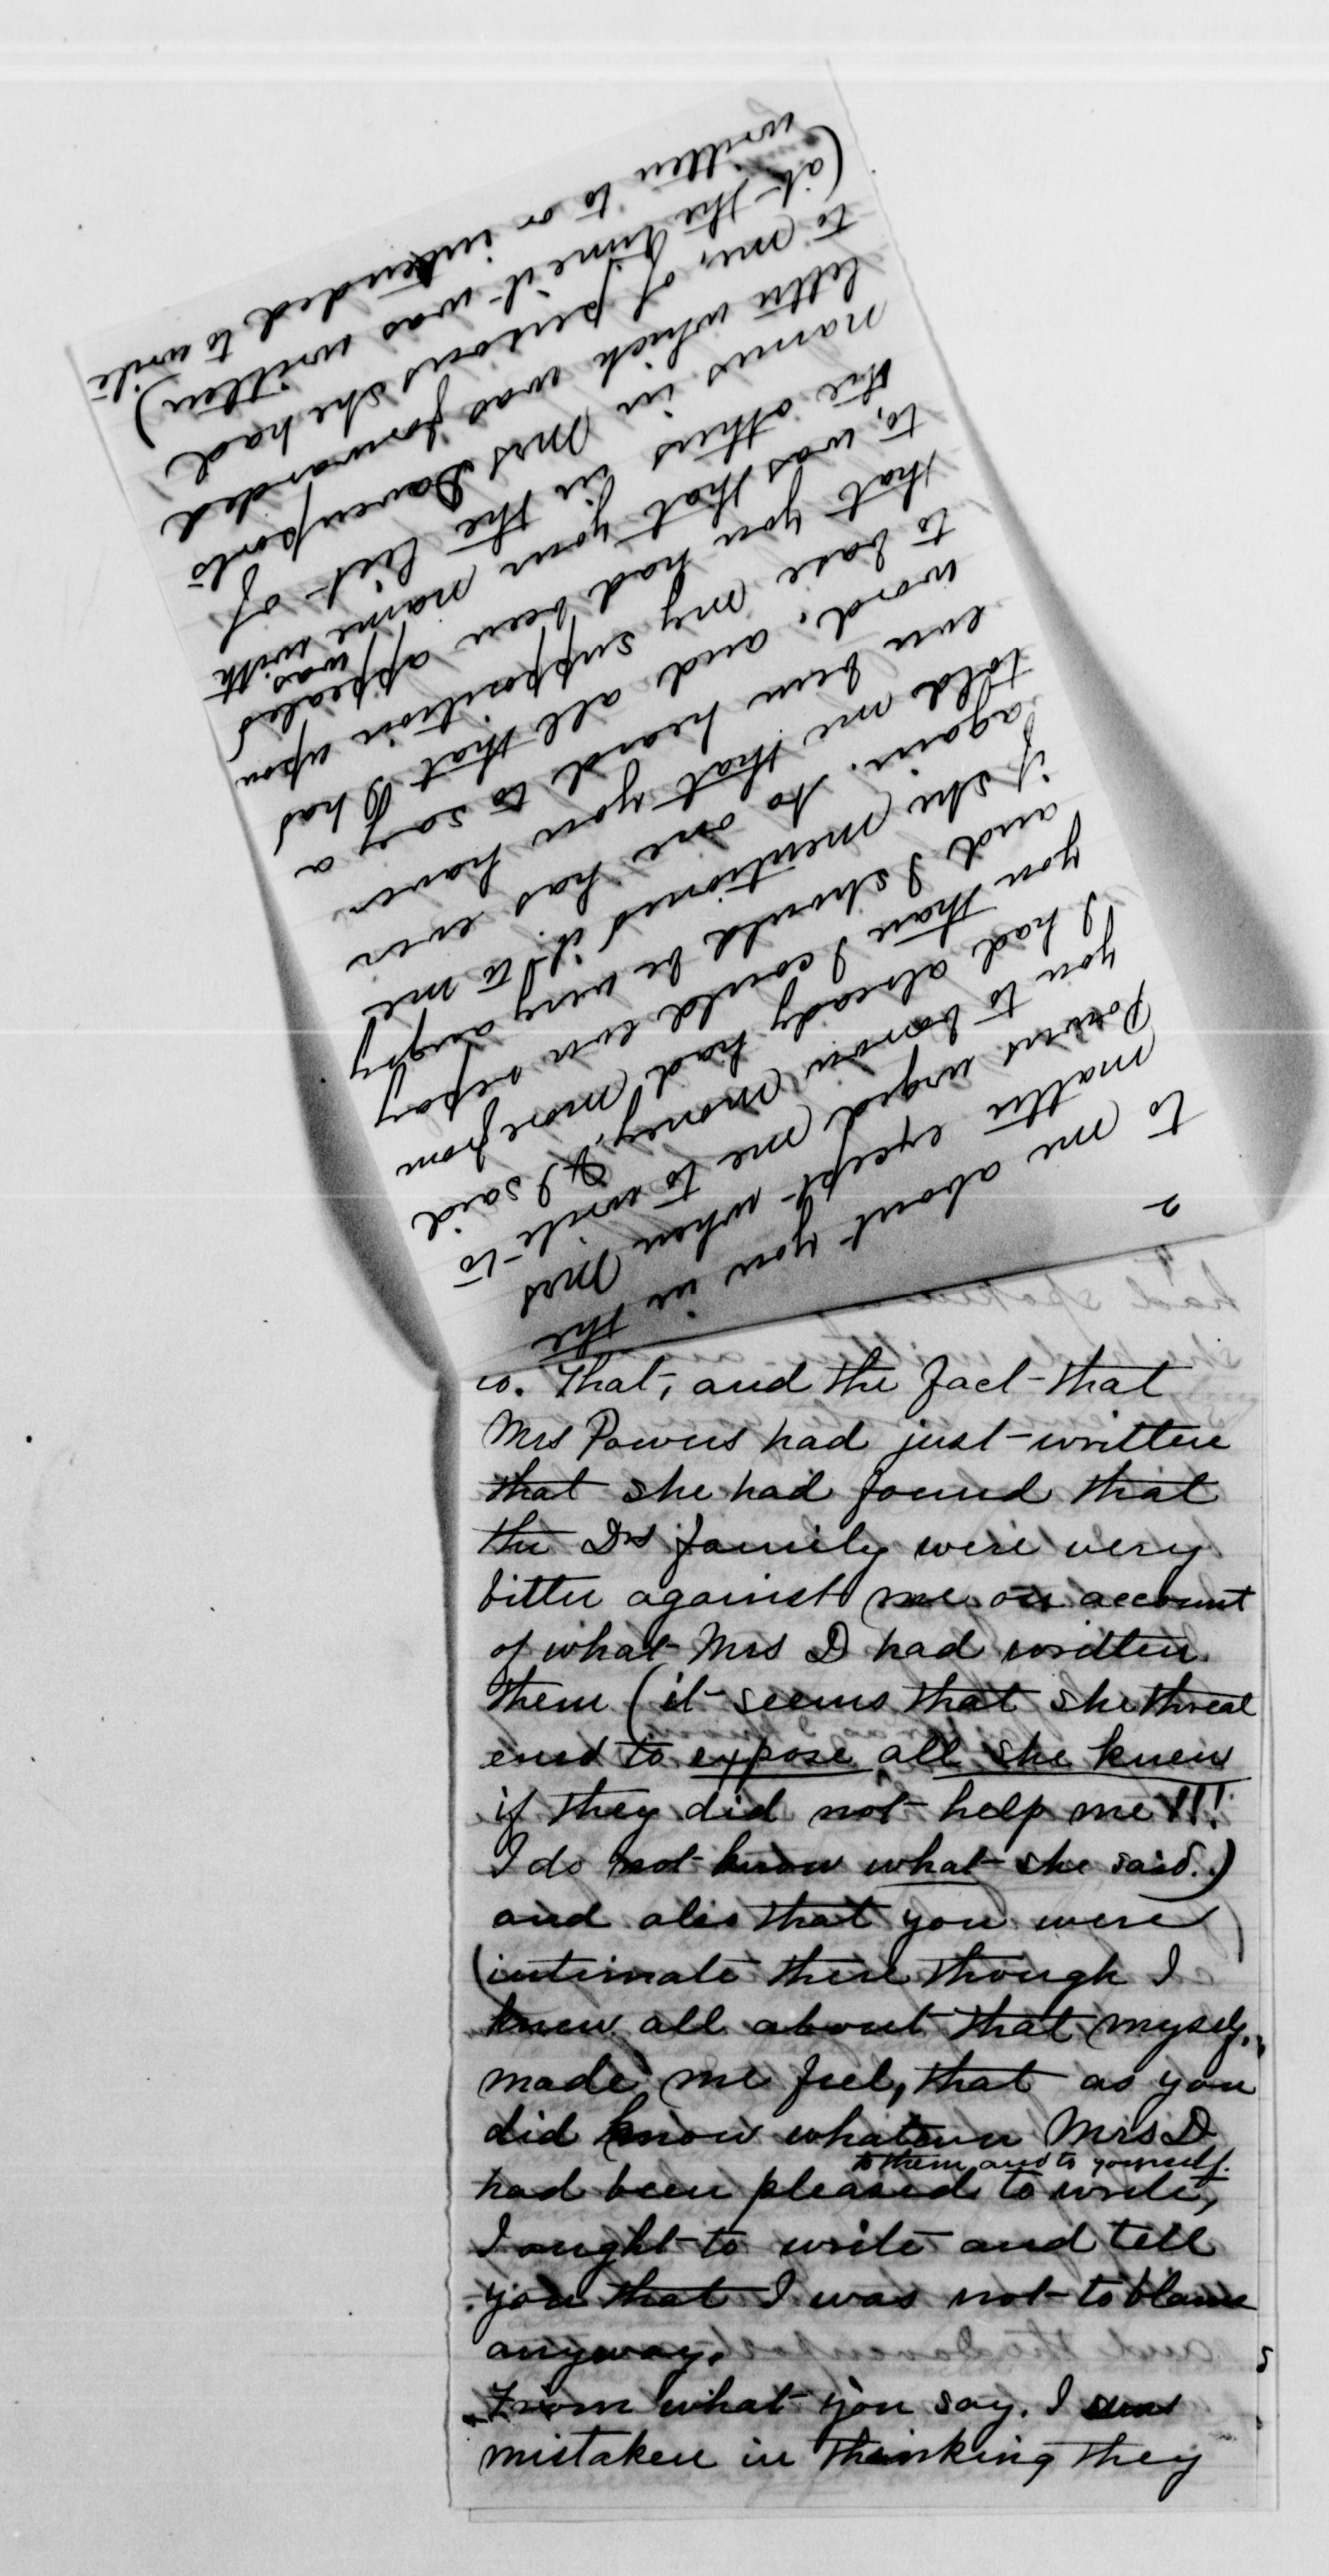 2
to me about you in the
matter except when Mrs
Powers urged me to write to
you to borrow money. & I said
I had already had more from
you than I could ever repay
and I should be very angry
if she mentioned it to me
again. No one has ever
told me that you have
even been heard to say a
word. and all that I had
to base my supposition upon
that you had been appealed
to, was that your name was with
the others in the list of
names in Mrs Davenports
letter which was forwarded
to me, of persons she had
(at the time it was written)
written to or intended to write
to. That, and the fact that
Mrs Powers had just written
that she had found that
the Drs family were very
bitter against me on account
of what Mrs D had written
them (it seems that she threat
ened to expose all she knew
if they did not help me!!!
I do not know what she said.)
and also that you were
(intimate there though I
knew all about that myself,
made me feel, that as you
did know whatever Mrs D
to them and to yourself.
had been pleased to write,
I ought to write and tell
you that I was not to blame
anyway.
From what you say. I was
mistaken in thinking they